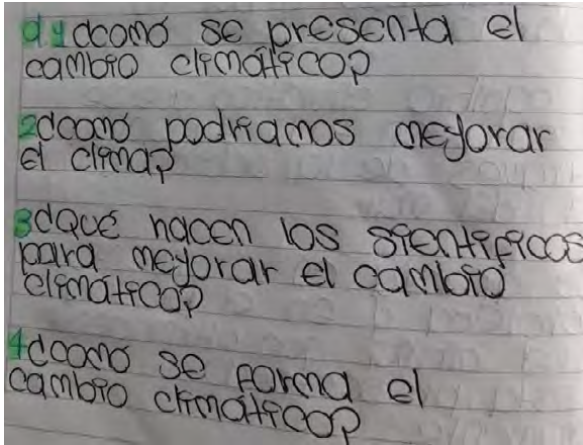 1 ¿como se presenta el
cambio climático?
2 ¿como podriamos meyorar
el clima?
3 ¿Qué hacen los sientificos
para meyorar el cambio
climático?
4 ¿como se forma el
cambio climático?